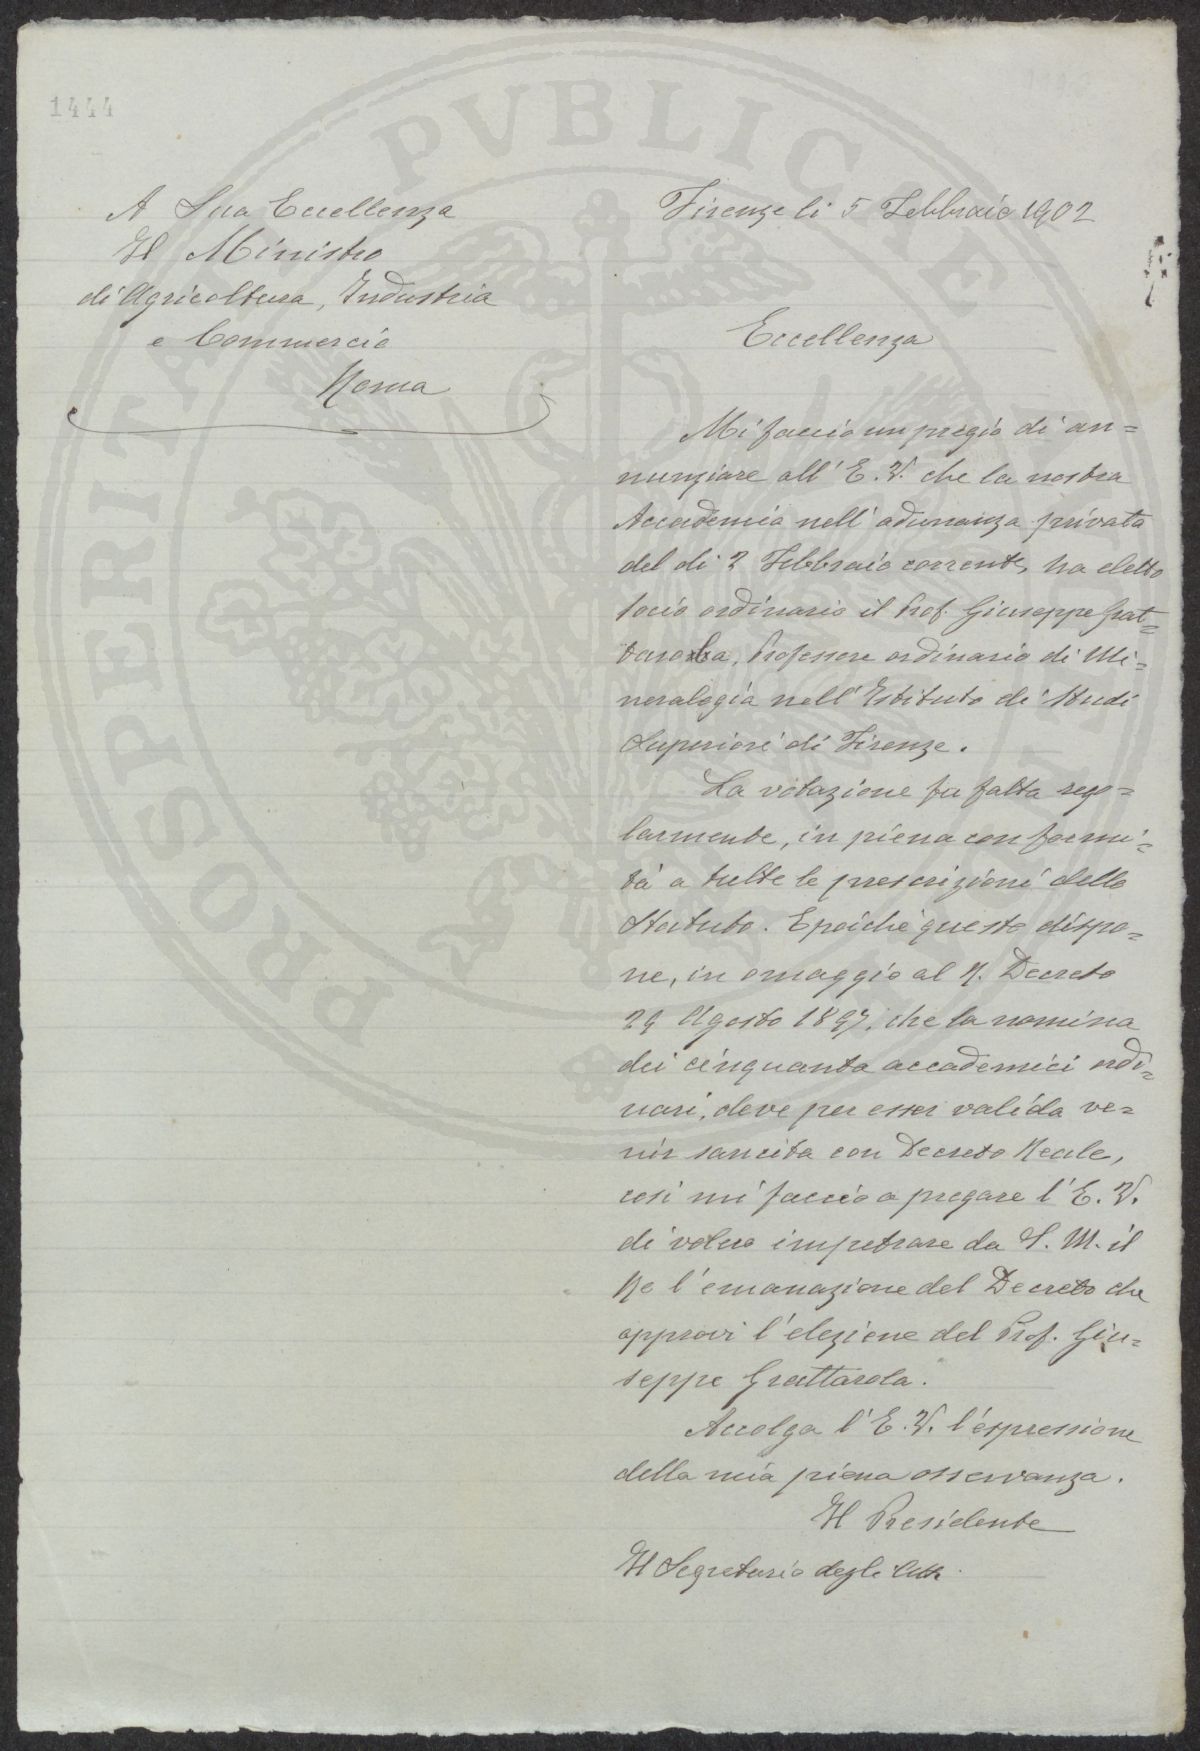 1444
A Sua Eccellenza
Il Ministro
di Agricoltura, Industria
e Commercio
Roma
Firenze li 5 Febbraio 1902
Eccellenza
Mi faccio un pregio di an=
nunziare all' E. V. che la nostra
Accademia nell' adunanza privata
del di 2 Febbraio corrente, ha eletto
socio ordinario il Prof. Giuseppe Grat=
tarola, Professore ordinario di Mi=
neralogia nell' Istituto di Studi
Superiori di Firenze.
La votazione fu fatta rego=
larmente, in piena conformi=
tà a tutte le prescrizioni dello
Statuto. E poichè questo dispo=
ne, in omaggio al R. Decreto
29 Agosto 1897, che la nomina
dei cinquanta accademici ordi=
nari, deve per esser valida ve=
nir sancita con Decreto Reale,
così mi faccio a pregare l' E. V.
di voler impetrare da S. M. il
Re l' emanazione del Decreto che
approvi l' elezione del Prof. Giu=
seppe Grattarola.
Accolga l' E. V. l' espressione
della mia piena osservanza.
Il Presidente
Il Segretario degli Atti
PROSPERITATI PVBLICAE